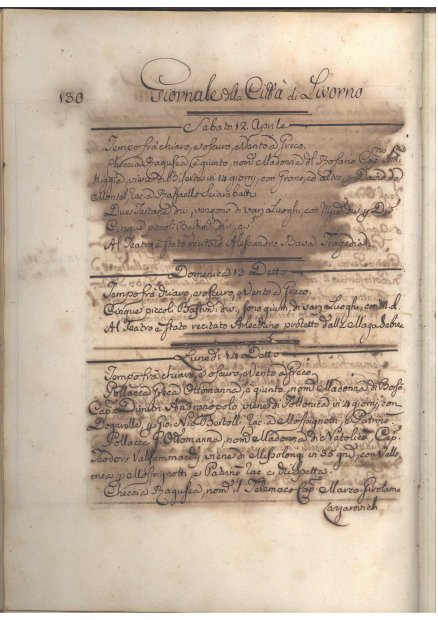 130 Giornale della Città di Livorno
Sabato 12. Aprile
Tempo frà chiaro, e oscuro, e Vento a Greco.
Checcia Ragusea è giunto, nom.ta Madonna di Rosario Cap.no
viene di in 14 giorni, con Grano, ed altro, p David da
Montel, rac. a Raffaello
Due Tartane div., vengono di varj Luoghi, con Mid. div. p Div.
Cinque piccoli Bastim.ti div. e.
Al Teatro è stato recitato Alessandro Tragedia
Domenica 13. Detto
Tempo frà chiaro, e oscuro, e Vento a Greco.
Cinque piccoli Bastim.ti div. sono giunti, di varj Luoghi, con M. d.
Al Teatro è stato recitato Arlecchino protetto dalla Maga
Lunedi 14. Detto
Tempo frà chiaro, e oscuro, e Vento a Greco.
Pollacca Greca Ottomanna, è giunto, nom.ta Madonna di
Cap.no Dimitri Andronopolo viene di Follonica in 4 giorni, con
p Gio. e Nic. Bertolli rac. a Mospignotti, e Patrino
Pollacca Ottomanna, nom.ta Madonna di Natolico Cap.
Teodoro viene di Missolongi in 35 gni, con Vallo
nea p Mospignotti, e Patrino rac. c. di
Checcia Ragusea, nom.ta il Telemaco Cap.no Marco Girolamo
Lazarovich